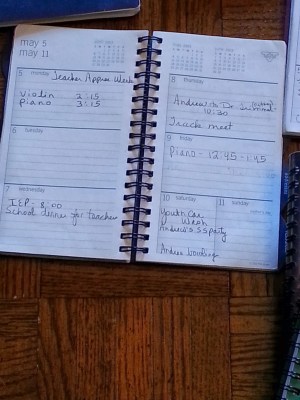 may 5
may 11
5 monday Teacher Apprec Week
violin 2:15
piano 3:15
6 tuesday
7 wednesday
IEP - 8:00
School dinner for teachers
8 thursday
Andrew to Dr.
10:30
Track meet
9 friday
piano - 12:45 - 1:45
10 saturday
Youth Car
Wash
Andrew's SS party
Andrew bowling
11 sunday